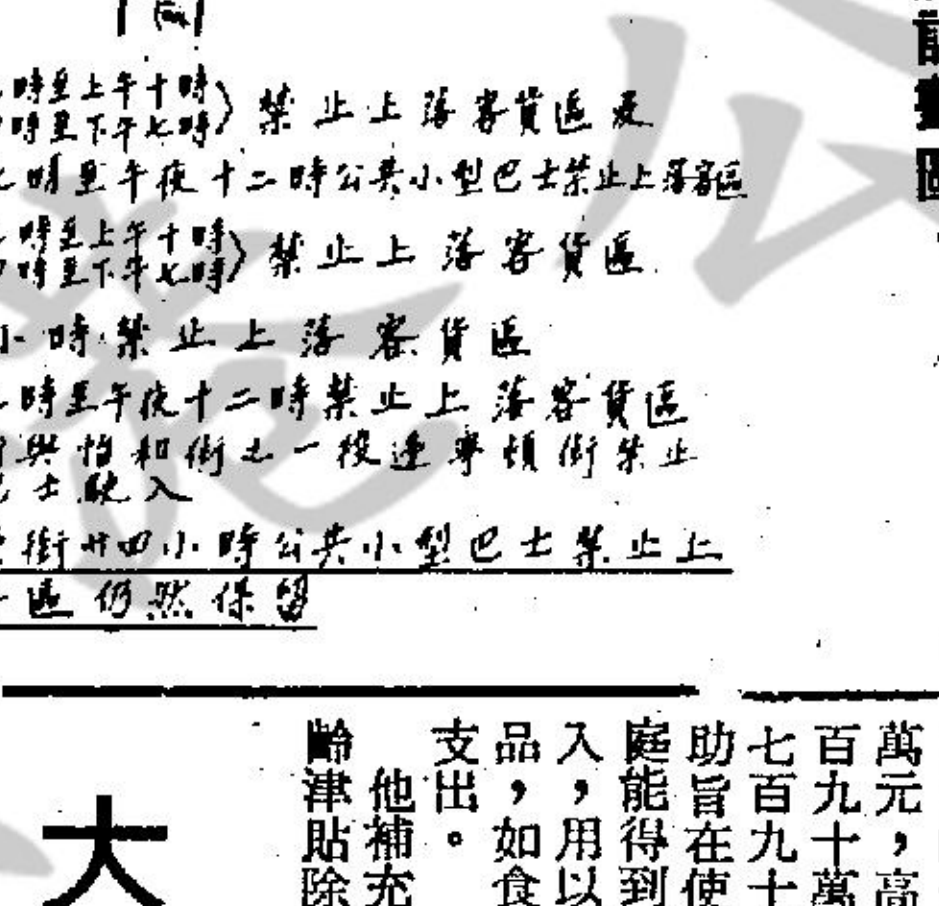 時至上午十時
時至下午七時〉禁止上落客貨區及
時至午夜十二時公共小型巴士禁止上落客區
時至上午十時
時至下午七時〉禁止上落客貨區
小時禁止上落客貨區
時至午夜十二時禁止上落客貨區
與怡和街之一段連寧頓街禁止
巴士駛入
街廿四小時公共小型巴士禁止上
區仍然保留
萬元，高
百九十萬
七百九十
助旨在使
庭能得到
入，用以
品，如食
支出。
他補充
齡津貼除
大